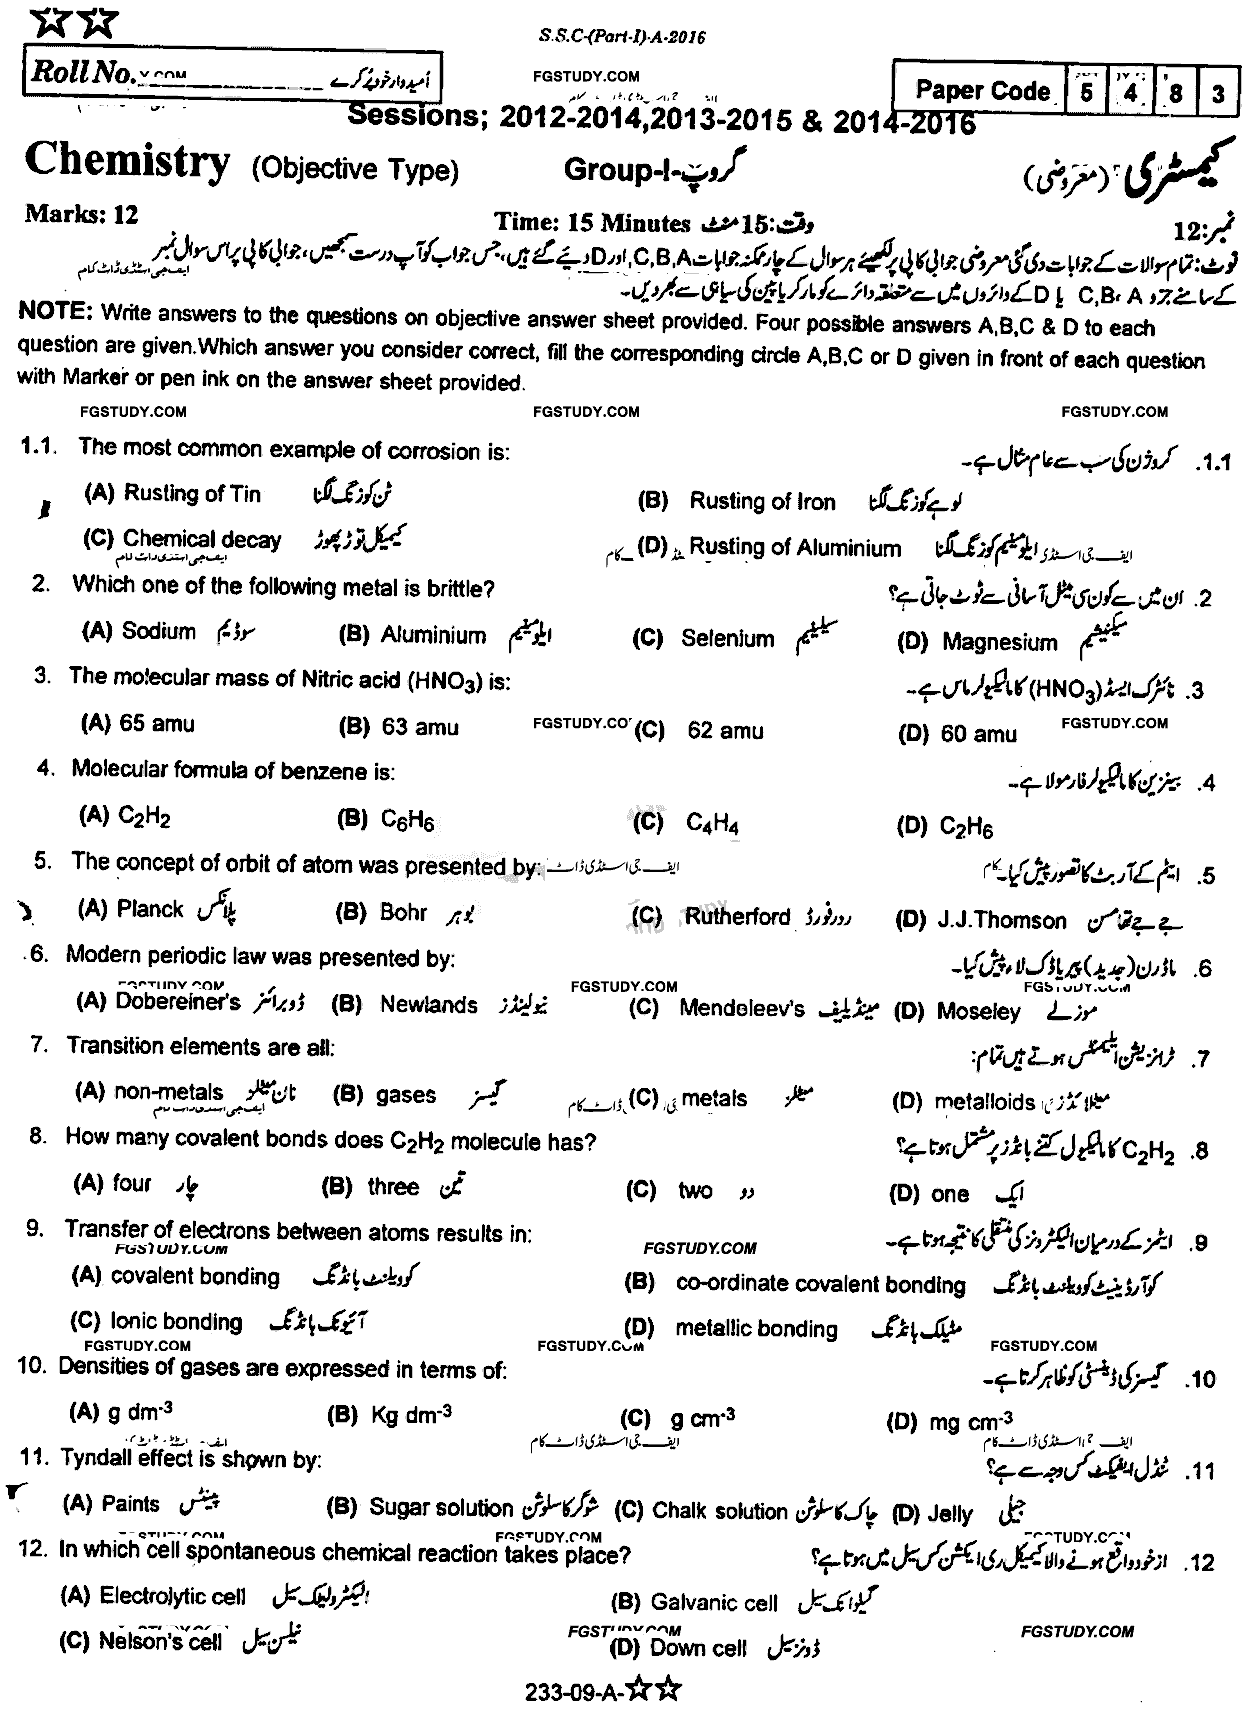 S.S.C-(Part-I)-A-2016
Roll No. امیدوار خود پُر کرے
FGSTUDY.COM
Paper Code 5 4 8 3
Sessions; 2012-2014,2013-2015 & 2014-2016
Chemistry (Objective Type) Group-I-گروپ کیمسٹری (معروضی)
Marks: 12 Time: 15 Minutes وقت:15 منٹ نمبر:12
نوٹ: تمام سوالات کے جوابات دی گئی معروضی جوابی کاپی پر لکھیئے ہر سوال کے چار ممکنہ جوابات C,B,A اور D دیئے گئے ہیں، جس جواب کو آپ درست سمجھیں، جوابی کاپی پر اس سوال نمبر
ایف جی اسٹڈی ڈاٹ کام
کے سامنے دیئے A، C,B یا D کے دائروں میں سے متعلقہ دائرے کو مارکر یا پین کی سیاہی سے بھر دیں۔
NOTE: Write answers to the questions on objective answer sheet provided. Four possible answers A,B,C & D to each
question are given.Which answer you consider correct, fill the corresponding circle A,B,C or D given in front of each question
with Marker or pen ink on the answer sheet provided.
FGSTUDY.COM FGSTUDY.COM FGSTUDY.COM
1.1. The most common example of corrosion is: کروژن کی سب سے عام مثال ہے۔ .1.1
(A) Rusting of Tin ٹن کو زنگ لگنا (B) Rusting of Iron لوہے کو زنگ لگنا
(C) Chemical decay کیمیکل توڑ پھوڑ (D) Rusting of Aluminium ایلومینیم کو زنگ لگنا
2. Which one of the following metal is brittle? ان میں سے کون سی میٹل آسانی سے ٹوٹ جاتی ہے؟ .2
(A) Sodium سوڈیم (B) Aluminium ایلومینیم (C) Selenium سیلینیم (D) Magnesium میگنیشیم
3. The molecular mass of Nitric acid (HNO3) is: نائٹرک ایسڈ (HNO3) کا مالیکیولر ماس ہے۔ .3
(A) 65 amu (B) 63 amu FGSTUDY.CO (C) 62 amu (D) 60 amu FGSTUDY.COM
4. Molecular formula of benzene is: بینزین کا مالیکیولر فارمولا ہے۔ .4
(A) C2H2 (B) C6H6 (C) C4H4 (D) C2H6
5. The concept of orbit of atom was presented by: ایف جی اسٹڈی ڈاٹ کام ایٹم کے آربٹ کا تصور پیش کیا۔ .5
(A) Planck پلانکس (B) Bohr بوہر (C) Rutherford ردرفورڈ (D) J.J.Thomson جے جے تھامسن
6. Modern periodic law was presented by: ماڈرن (جدید) پیریاڈک لاء پیش کیا۔ .6
FGSTUDY.COM FGSTUDY.COM FGSTUDY.COM
(A) Dobereiner's ڈوبرائنز (B) Newlands نیولینڈز (C) Mendeleev's مینڈیلیف (D) Moseley موزلے
7. Transition elements are all: ٹرانزیشن ایلیمنٹس ہوتے ہیں تمام: .7
(A) non-metals نان میٹلز (B) gases گیسز (C) metals میٹلز (D) metalloids میٹلائڈز
8. How many covalent bonds does C2H2 molecule has? C2H2 کا مالیکیول کتنے بانڈز پر مشتمل ہوتا ہے؟ .8
(A) four چار (B) three تین (C) two دو (D) one ایک
9. Transfer of electrons between atoms results in: ایٹمز کے درمیان الیکٹرونز کی منتقلی کا نتیجہ ہوتا ہے۔ .9
FGSTUDY.COM FGSTUDY.COM
(A) covalent bonding کوویلنٹ بانڈنگ (B) co-ordinate covalent bonding کوآرڈینیٹ کوویلنٹ بانڈنگ
(C) Ionic bonding آئیونک بانڈنگ (D) metallic bonding مٹیلک بانڈنگ
FGSTUDY.COM FGSTUDY.COM FGSTUDY.COM
10. Densities of gases are expressed in terms of: گیسز کی ڈینسٹی کو ظاہر کرتا ہے۔ .10
(A) g dm-3 (B) Kg dm-3 (C) g cm-3 (D) mg cm-3
ایف جی اسٹڈی ڈاٹ کام
11. Tyndall effect is shown by: ٹنڈل ایفیکٹ کس وجہ سے ہے؟ .11
(A) Paints پینٹس (B) Sugar solution شوگر کا سلوشن (C) Chalk solution چاک کا سلوشن (D) Jelly جیلی
FGSTUDY.COM FGSTUDY.COM
12. In which cell spontaneous chemical reaction takes place? ازخود واقع ہونے والا کیمیکل ری ایکشن کس سیل میں ہوتا ہے؟ .12
(A) Electrolytic cell الیکٹرولیٹک سیل (B) Galvanic cell گیلوانک سیل
(C) Nelson's cell نیلسن سیل (D) Down cell ڈاؤنز سیل
FGSTUDY.COM FGSTUDY.COM
233-09-A-☆☆